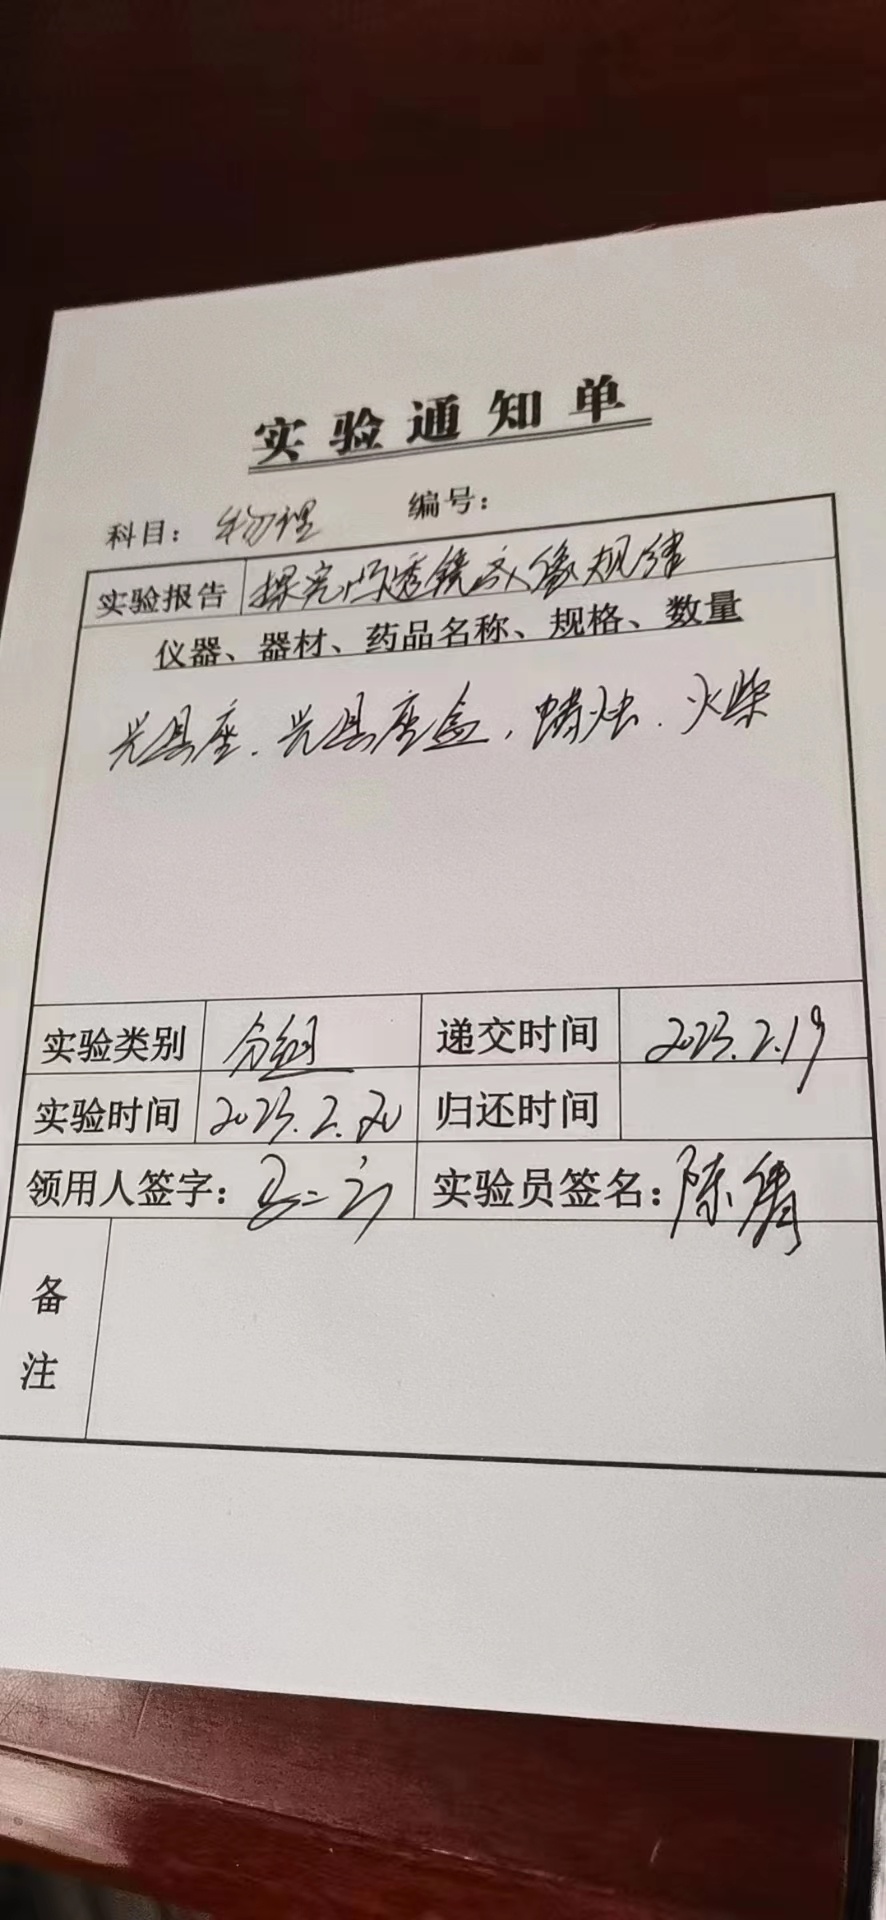 实验通知单
科目：物理 编号：
实验报告 探究凸透镜成像规律
仪器、器材、药品名称、规格、数量
光具座、光具座盒，蜡烛、火柴
实验类别 分组 递交时间 2023.2.19
实验时间 2023.2.20 归还时间
领用人签字： 实验员签名：陈倩
备注